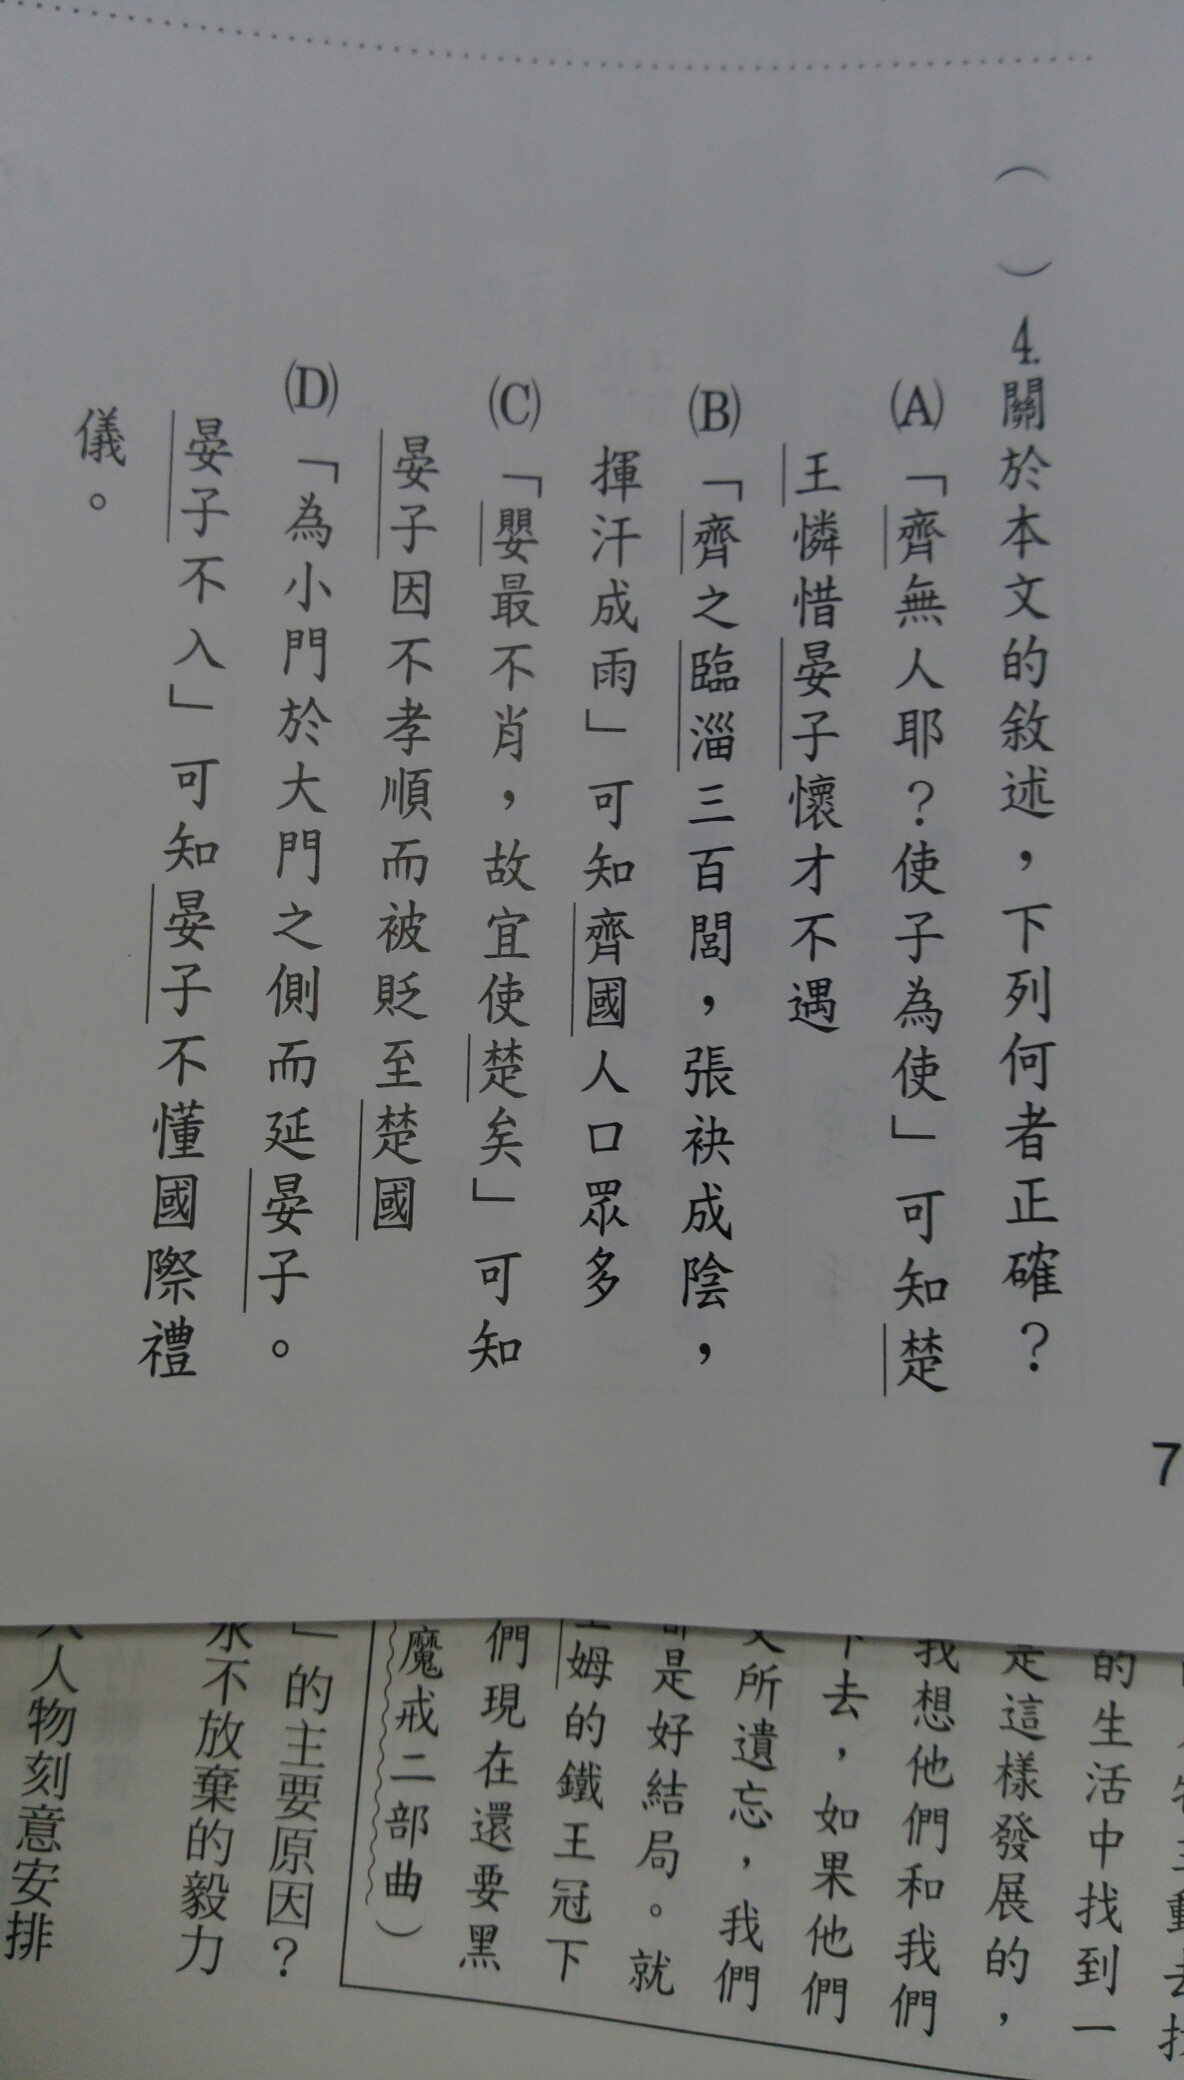 ( ) 4.關於本文的敘述，下列何者正確？
(A)「齊無人耶？使子為使」可知楚
王憐惜晏子懷才不遇
(B)「齊之臨淄三百閭，張袂成陰，
揮汗成雨」可知齊國人口眾多
(C)「嬰最不肖，故宜使楚矣」可知
晏子因不孝順而被貶至楚國
(D)「為小門於大門之側而延晏子。
晏子不入」可知晏子不懂國際禮
儀。
7
的生活中找到一
是這樣發展的，
我想他們和我們
下去，如果他們
所遺忘，我們
是好結局。就
姆的鐵王冠下
們現在還要黑
魔戒二部曲）
」的主要原因？
永不放棄的毅力
人物刻意安排